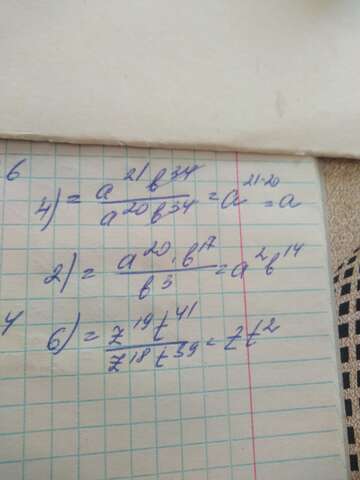 6
4) = a²¹b³⁴ / a²⁰b³⁴ = a²¹⁻²⁰ = a
2) = a²⁰·b¹⁷ / b³ = a²b¹⁴
4
6) = z¹⁹t⁴¹ / z¹⁸t³⁹ = zt²